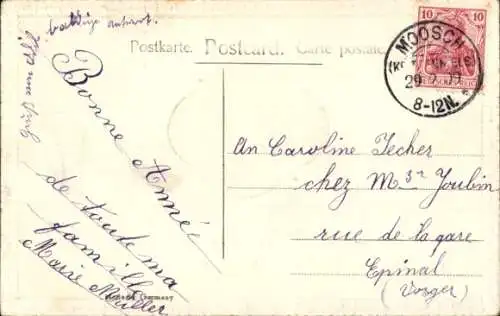 baldige antwort.
Postkarte. Postcard. Carte postale.
10 10
MOOSCH
8-12N.
Bonne Année
de toute ma
famille
Marie Müller
An Caroline Jecher
chez Mr Joubin
rue de la gare
Epinal
(Vosger)
Germany